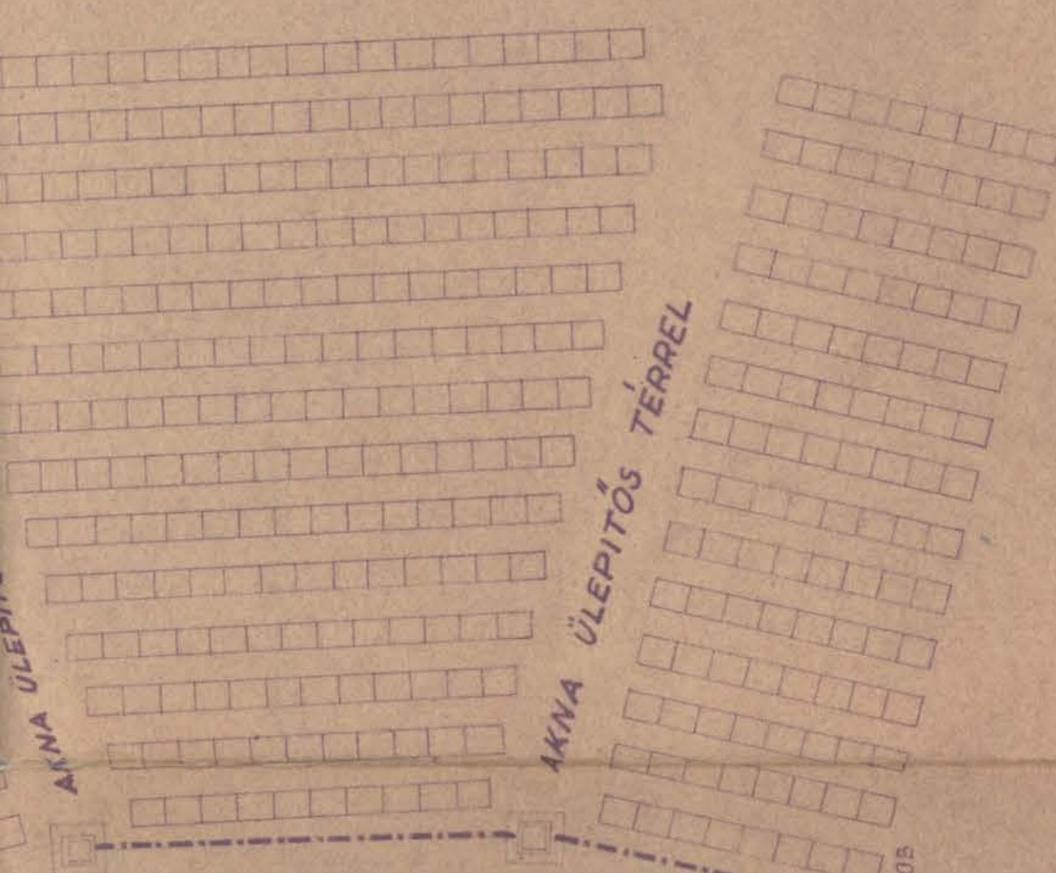 AKNA ÜLEPÍ
AKNA ÜLEPITŐS TÉRREL